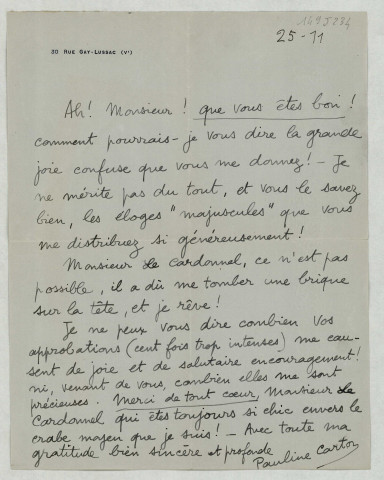 149J284
20 RUE GAY-LUSSAC (Ve)
25-11
Ah! Monsieur! que vous êtes bon!
comment pourrais-je vous dire la grande
joie confuse que vous me donnez! - Je
ne mérite pas du tout, et vous le savez
bien, les éloges "majuscules" que vous
me distribuez si généreusement!
Monsieur le Cardonnel, ce n'est pas
possible, il a dû me tomber une brique
sur la tête, et je rêve!
Je ne peux vous dire combien vos
approbations (cent fois trop intenses) me cau-
sent de joie et de salutaire encouragement!
ni, venant de vous, combien elles me sont
précieuses. Merci de tout cœur, Monsieur le
Cardonnel qui êtes toujours si chic envers le
crabe moyen que je suis! - Avec toute ma
gratitude bien sincère et profonde
Pauline Carton